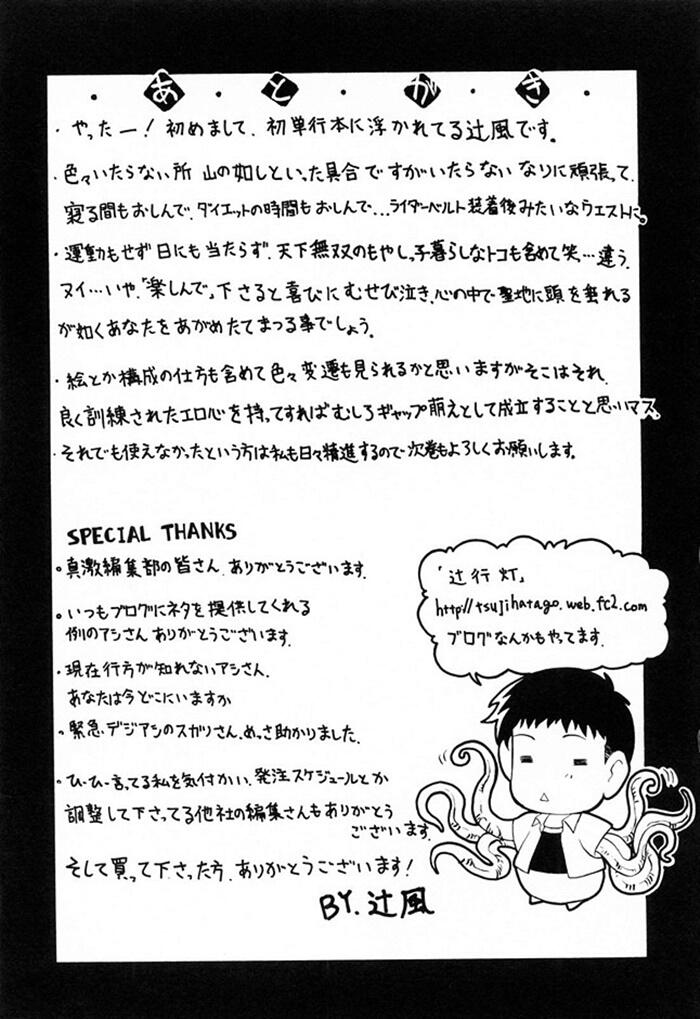 ・あ・と・が・き・
・やったー！初めまして、初単行本に浮かれてる辻風です。
・色々いたらない所 山の如しといった具合ですがいたらないなりに頑張って、
寝る間もおしんで、ダイエットの時間もおしんで…ライダーベルト装着後みたいなウエストに。
・運動もせず日にも当たらず、天下無双のもやしっ子暮らしなトコも含めて笑…違う、
ヌイ…いや、「楽しんで」下さると喜びにむせび泣き、心の中で聖地に頭を垂れる
が如くあなたをあがめたてまつる事でしょう。
・絵とか構成の仕方も含めて色々変遷も見られるかと思いますがそこはそれ、
良く訓練されたエロ心を持ってすればむしろギャップ萌えとして成立することと思いマス。
・それでも使えなかったという方は私も日々精進するので次巻もよろしくお願いします。
SPECIAL THANKS
・真激編集部の皆さん、ありがとうございます。
・いつもブログにネタを提供してくれる
例のアシさん ありがとうございます。
・現在行方が知れないアシさん、
あなたは今どこにいますか
・緊急デジアシのスガリさん、めっさ助かりました。
・ひーひー言ってる私を気付かい、発注スケジュールとか
調整して下さってる他社の編集さんもありがとう
ございます。
そして買って下さった方、ありがとうございます！
BY.辻風
「辻行灯」
http://tsujihatago.web.fc2.com
ブログなんかもやってます。